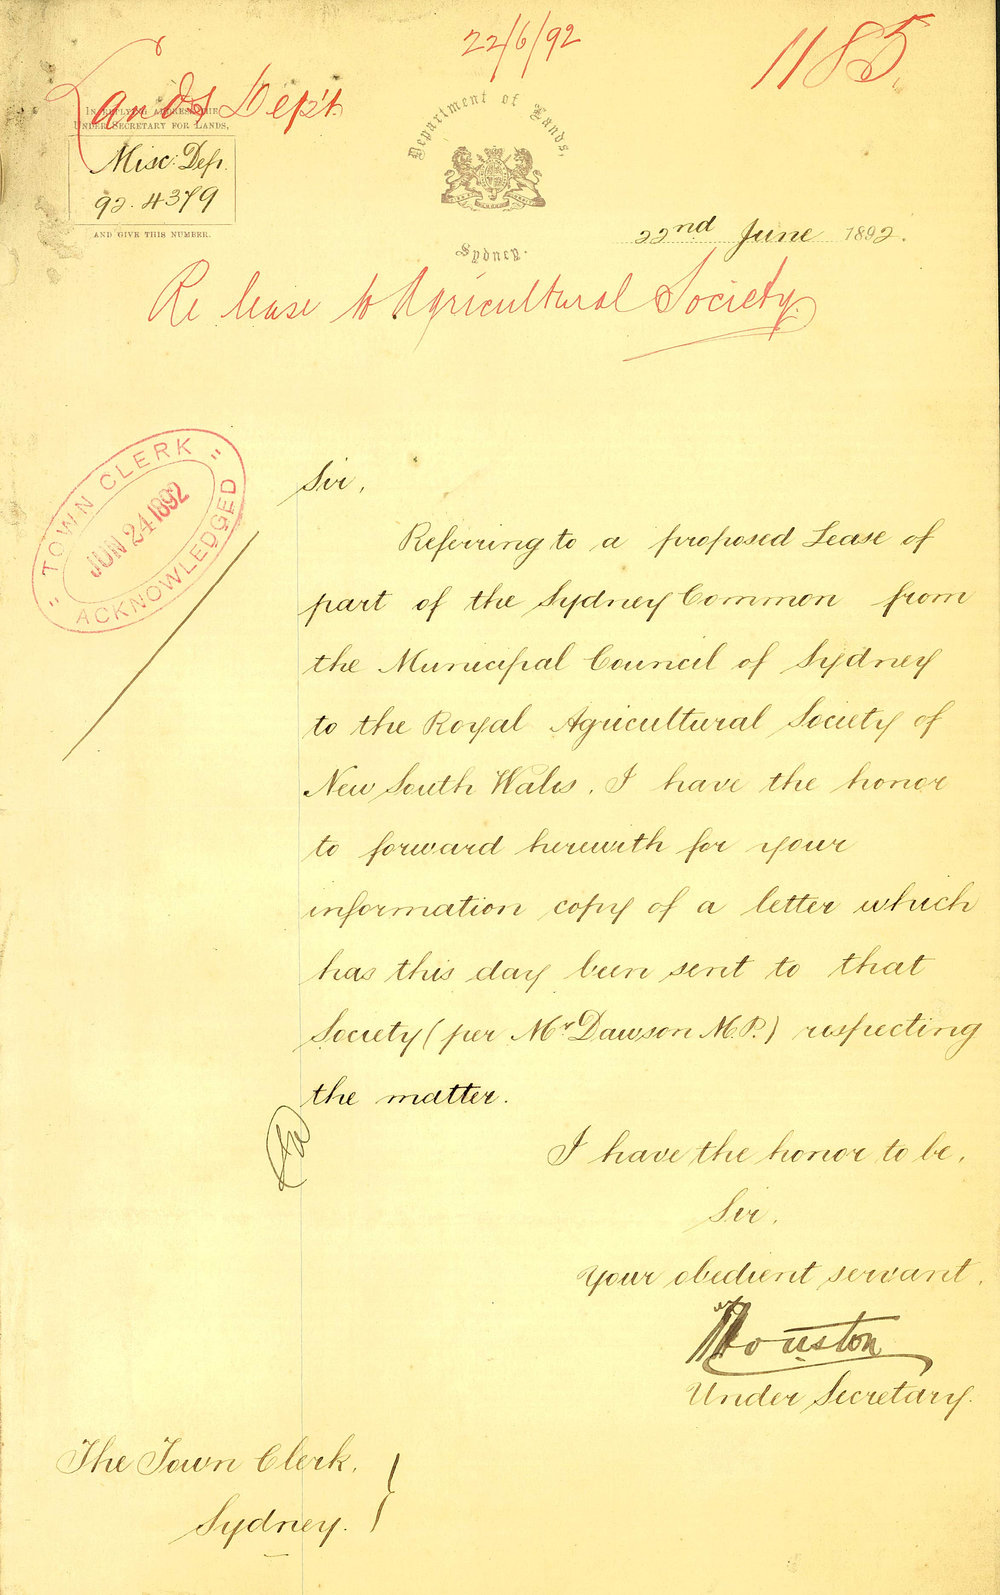 22/6/92
1185
Lands Dep't.
IN REPLYING ADDRESS THE
UNDER SECRETARY FOR LANDS,
Misc: Dep.
92.4379
AND GIVE THIS NUMBER.
Department of Lands,
Sydney.
22nd June 1892.
Re lease to Agricultural Society
"TOWN CLERK"
JUN 24 1892
ACKNOWLEDGED
Sir,
Referring to a proposed Lease of
part of the Sydney Common from
the Municipal Council of Sydney
to the Royal Agricultural Society of
New South Wales, I have the honor
to forward herewith for your
information copy of a letter which
has this day been sent to that
Society (per Mr Dawson M.P.) respecting
the matter.
I have the honor to be,
Sir,
Your obedient servant,
Houston
Under Secretary.
The Town Clerk,
Sydney.